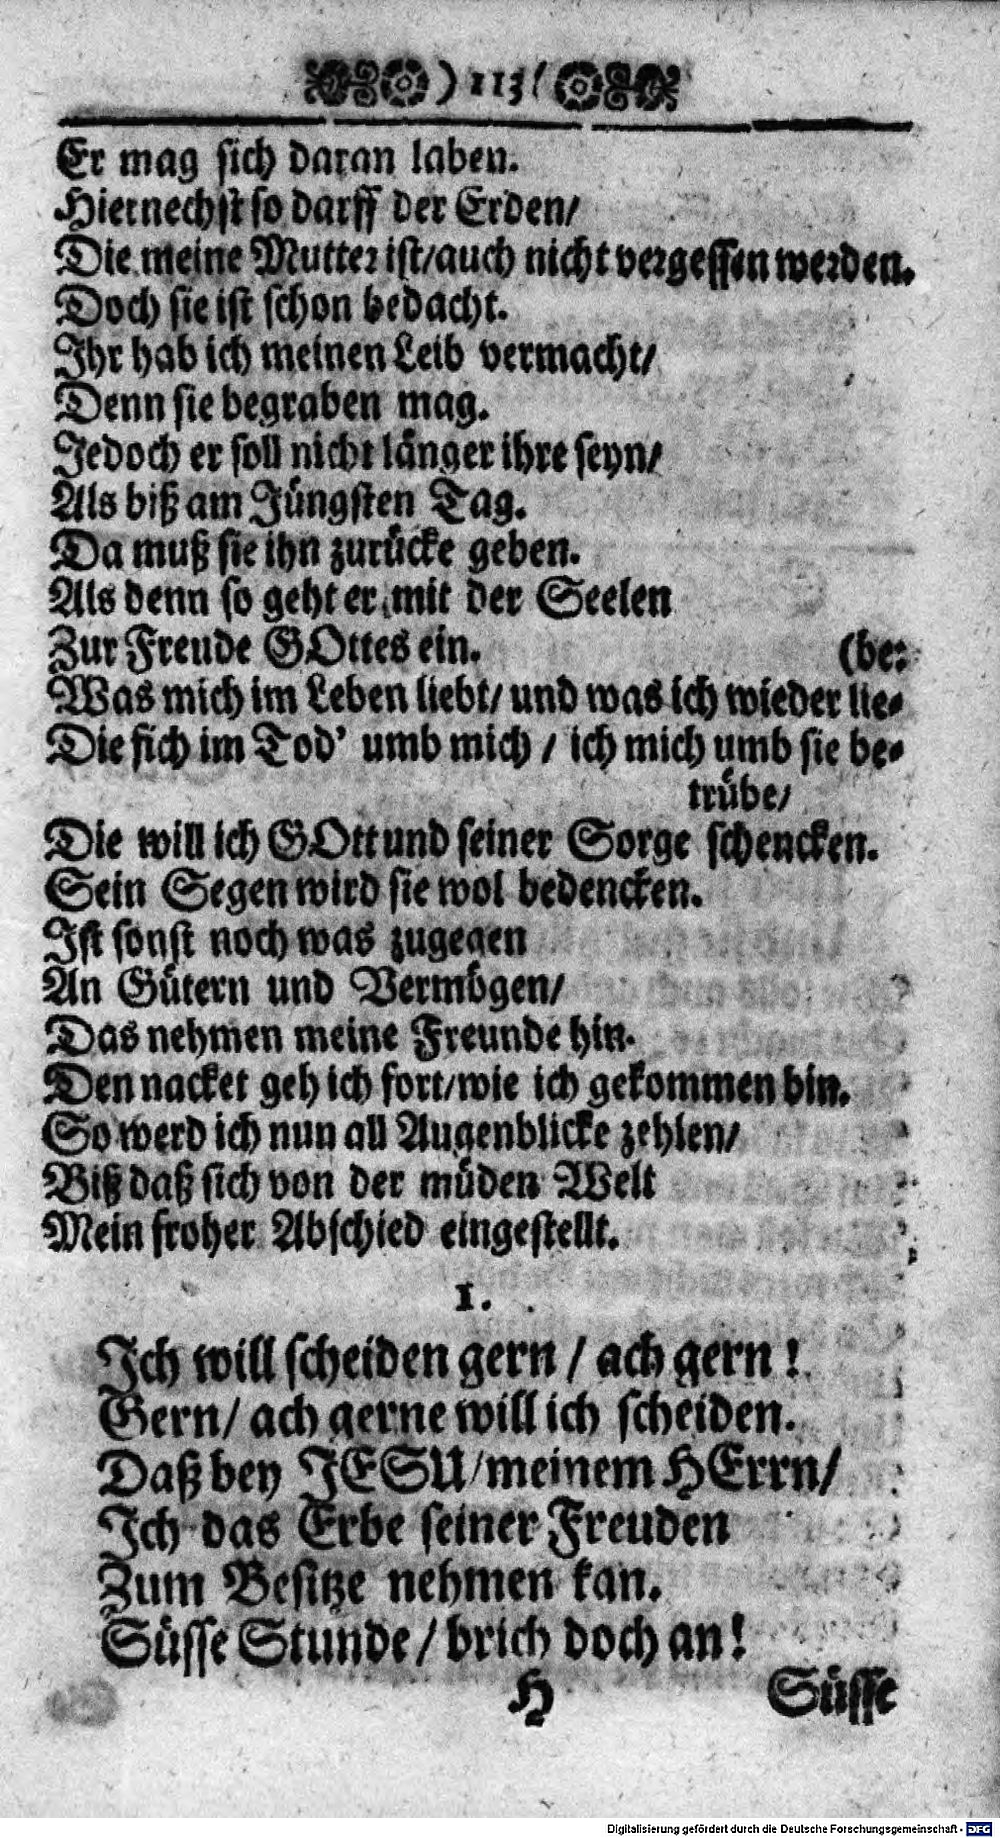 ) 113 (
Er mag sich daran laben.
Hiernechst so darff der Erden/
Die meine Mutter ist/auch nicht vergessen werden.
Doch sie ist schon bedacht.
Ihr hab ich meinen Leib vermacht/
Denn sie begraben mag.
Jedoch er soll nicht länger ihre seyn/
Als biß am Jüngsten Tag.
Da muß sie ihn zurücke geben.
Als denn so geht er mit der Seelen
Zur Freude GOttes ein. (be:
Was mich im Leben liebt/ und was ich wieder lie-
Die sich im Tod' umb mich / ich mich umb sie be-
trübe/
Die will ich GOtt und seiner Sorge schencken.
Sein Segen wird sie wol bedencken.
Ist sonst noch was zugegen
An Gütern und Vermögen/
Das nehmen meine Freunde hin.
Den nacket geh ich fort/wie ich gekommen bin.
So werd ich nun all Augenblicke zehlen/
Biß daß sich von der müden Welt
Mein froher Abschied eingestellt.
1.
Ich will scheiden gern / ach gern !
Gern/ ach gerne will ich scheiden.
Daß bey JESU/meinem HErrn/
Ich das Erbe seiner Freuden
Zum Besitze nehmen kan.
Süsse Stunde / brich doch an!
H Süsse
Digitalisierung gefördert durch die Deutsche Forschungsgemeinschaft - DFG